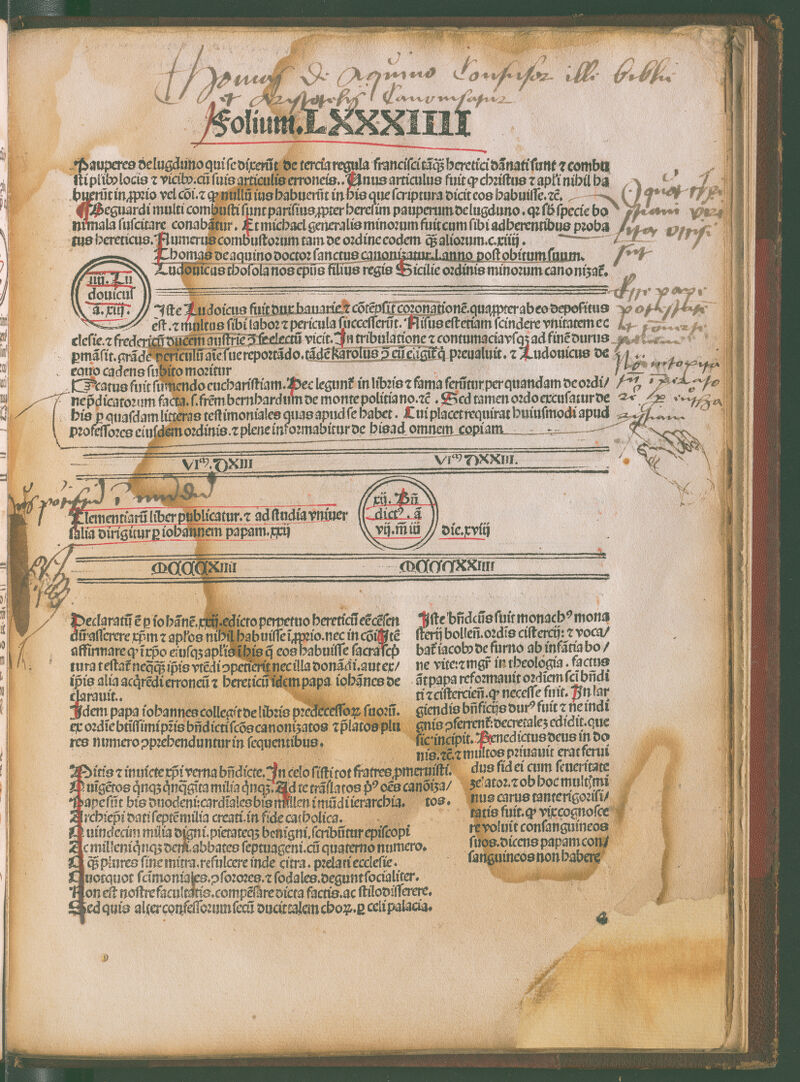 Thomas de Aquino Confusor ille biblie
et Aristotelis Canonisatur
Folium.LXXXIIII
Pauperes de lugduno qui se dixerūt de tercia regula francisci tāq̄ȝ heretici dānati sunt ⁊ combu
sti pl'ibꝰ locis ⁊ vicibꝰ. cū suis articulis erroneis.. Unus articulus fuit ꝙ christus ⁊ apl'i nihil ha
buerūt in ꝓprio vel cōi. ⁊ ꝙ nullū ius habuerūt in his que scriptura dicit eos habuisse. ⁊c̄.
Beguardi multi combusti sunt parisius, ꝓpter heresim pauperum de lugduno. qr̄ sb̄ specie bo
ni mala suscitare conabātur. Et michael generalis minorum fuit cum sibi adherentibus proba
tus hereticus. Numerus combustorum tam de ordine eodem q̄ȝ aliorum. c. xiiij.
Thomas de aquino doctor sanctus canonizatur. l. anno post obitum suum.
Ludouicus tholosanos ep̄us filius regis Sicilie ordinis minorum canonizat̄.
iiij. Lu
douicus
a. xiij.
Iste Ludoicus fuit dux bauarie ⁊ cōtēpsit coronationē. quaꝓpter ab eo depositus
est. ⁊ multus sibi labor ⁊ pericula successerūt. Nisus est etiam scindere vnitatem ec
clesie. ⁊ fredericū ducem austrie ɔ se electū vicit. In tribulatione ⁊ contumacia vsqȝ ad finē durus
ꝑmāsit. grāde periculū aīe sue reportādo. tādē karolus ɔ eū eligit̄ ꝗ preualuit. ⁊ Ludouicus de
equo cadens subito moritur
Necatus fuit sumendo eucharistiam. Hec legunt̄ in libris ⁊ fama ferūtur per quandam de ordi/
ne p̄dicatorum facta. s. frēm bernhardum de monte politiano. ⁊c̄. Sed tamen ordo excusatur de
his ꝑ quasdam litteras testimoniales quas apud se habet. Cui placet requirat huiusmodi apud
professores eiusdem ordinis. ⁊ plene informabitur de his ad omnem copiam
VIᵐ.DXIII VIᵐDXXIII.
Clementiarū liber publicatur. ⁊ ad studia vniuer
salia dirigitur ꝑ iohannem papam. xxij
xij. Bñ
dictꝰ. ā
vij. m̄ iij
die. xviij
MCCCXIIII MCCCXXIIII
Declaratū ē ꝑ iohānē. xxij. edicto perpetuo hereticū eē cēsen
dū asserere xp̄m ⁊ ap̄los nihil habuisse ī ꝓprio. nec in cōi Itē
affirmare ꝙ ī xp̄o eiusqȝ apl'is ī his q̄ eos habuisse sacra scp̄
tura testat̄ neq̄ȝq̄ȝ ip̄is vtēdi ɔpetierit nec illa donādi. aut ex/
ip̄is alia acq̄rēdi erroneū ⁊ hereticū idem papa iohānes de
clarauit..
Idem papa iohannes collegit de libris predecessoꝝ suorū.
ex ordīe btissimi p̄ris bn̄dicti scōs canonizatos ⁊ p̄latos plu
res numero ɔprehenduntur in sequentibus.
Mitis ⁊ inuicte xp̄i verna bn̄dicte. In celo sisti tot fratres ꝓmeruisti.
Quigētos q̄nqȝ q̄nq̄gīta milia q̄nqȝ. Ad te trāslatos pꝰ oēs canōiza/
Pape sūt his duodeni: cardiales bis millen i mūdi ierarchia. tos.
Archiep̄i dati septē milia creati. in fide catholica.
Quindecim milia digni. pietateqȝ benigni, scribūtur episcopi
Ac milleni q̄nqȝ deni. abbates septuageni. cū quaterno numero.
O q̄ȝ plures sine mitra. refulcere inde citra. prelati ecclesie.
Quotquot scīmoniales. ɔsorores. ⁊ sodales. degunt socialiter.
Non est nostre facultatis. compēsare dicta factis. ac stilo disserere.
Sed quis aliter confessorum secū ducit talem choꝝ. ꝑ celi palacia.
Iste bn̄dcūs fuit monachꝰ mona
sterij bollen̄. ordīs cistercij: ⁊ voca/
bat̄ iacobꝰ de furno ab infātia bo/
ne vite: ⁊ mgr̄ in theologia. factus
āt papa reformauit ordiem scī bn̄di
ti ⁊ cisterciēn̄. ꝙ necesse fuit. In lar
giendis bn̄ficijs durꝰ fuit ⁊ ne indi
gnis ɔferrent̄: decretaleȝ edidit. que
sic incipit. Benedictus deus in do
nis. ⁊c̄. ⁊ multos priuauit erat ferui
dus fidei cum seueritate
zelator. ⁊ ob hoc mult̄mi
nus carus tante rigorisi/
tatis fuit. ꝙ vix cognosce
re voluit consanguineos
suos. dicens papam con/
sanguineos non habere